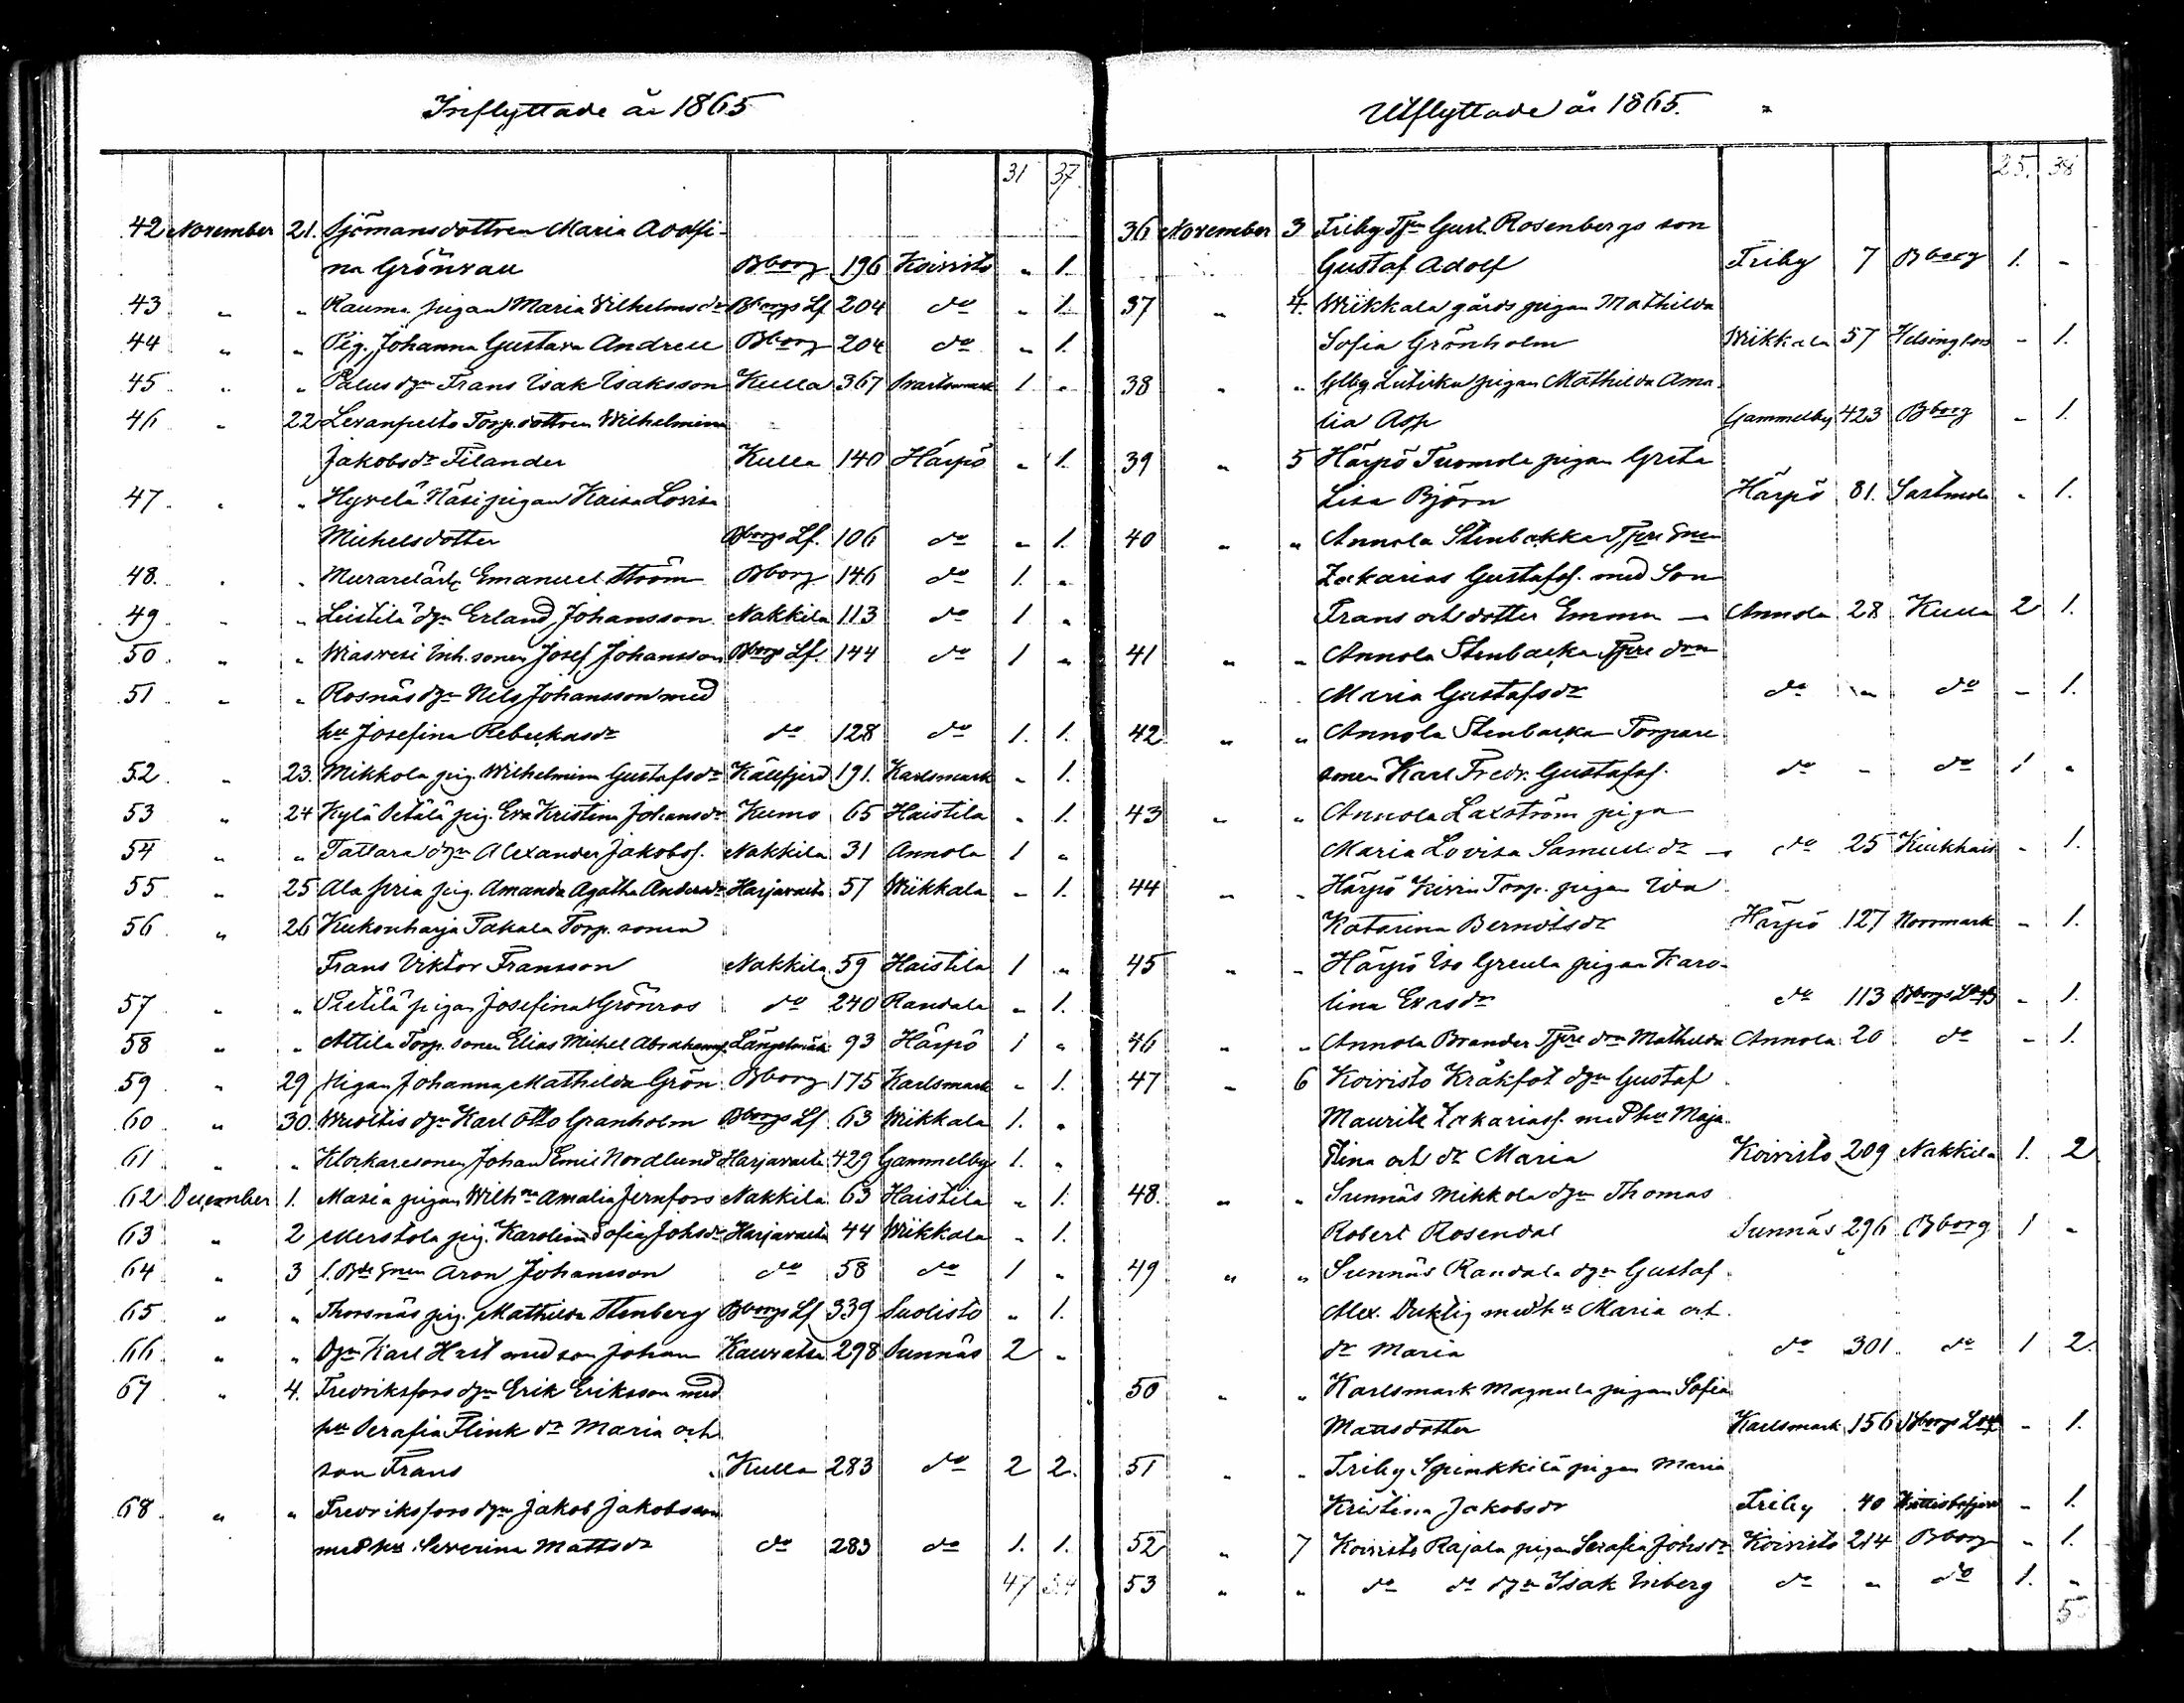 Inflyttade år 1865
31 37
42 November 21. Sjömansdottren Maria Adolfi-
na Grönvall Bborg 196 Koivisto " 1.
43 " " Rauma pigan Maria Vilhelmsdr Bborgs Lf 204 do " 1.
44 " " Pig. Johanna Gustava Andrell Bborg 204 do " 1.
45 " " Palus dgn Frans Isak Isaksson Kulla 367 Svartsmark 1 "
46 " 22 Levanpelto Torp.dottren Wilhelmina
Jakobsdr Filander Kulla 140 Härpö " 1.
47 " " Hyvelä Näsi pigan Kaisa Lovisa
Michelsdotter Bborgs Lf. 106 do " 1.
48. " " Murarelärl. Emanuel Ström Bborg 146 do 1. "
49 " " Leistilä dgn Erland Johansson Nakkila 113 do 1 "
50 " " Wiasvesi Inh. sonen Josef Johansson Bborgs Lf. 144 do 1 "
51 " " Rosnäs dgn Nils Johansson med
hu Josefina Rebeckasdr do 128 do 1. 1.
52 " 23. Mikkola pig. Wilhelmina Gustafsdr Källfjerd 191. Karlsmark " 1.
53 " 24 Kylä Petälä pig. Eva Kristina Johansdr Kumo 65 Haistila " 1.
54 " " Tattara dgn Alexander Jakobss. Nakkila 31 Annola 1 "
55 " 25 Ala Piria pig. Amanda Agatha Andersdr Harjavalta 57 Wiikkala " 1.
56 " 26 Kukonharja Pakala Torp. sonen
Frans Viktor Fransson Nakkila 59 Haistila 1 "
57 " " Pietilä pigan Josefina Grönros do 240 Randala " 1.
58 " " Attila Torp. sonen Elias Michel Abrahamss. Längelmäki 93 Härpö 1 "
59 " 29 Pigan Johanna Mathilda Grön Bborg 175 Karlsmark " 1.
60 " 30. Wuoltis dgn Karl Otto Granholm Bborgs Lf 63 Wiikkala 1. "
61 " " Klockaresonen Johan Emil Nordlund Harjavalta 429 Gammelby 1. "
62 December 1. Masia pigan Wilhna Amalia Jernfors Nakkila 63 Haistila " 1.
63 " 2 Merstola pig. Karolina Sofia Johsdr Harjavalta 44 Wiikkala " 1.
64 " 3 Aron Johansson do 58 do 1 "
65 " " Thorsnäs pig. Mathilda Stenberg Bborgs Lf 339 Suolisto " 1.
66 " " Dgn Karl Hast med son Johan Kauvatsa 298 Sunnäs 2 "
67 " 4. Fredriksfors dgn Erik Eriksson med
hu Serafia Flink dr Maria och
son Frans Kulla 283 do 2 2.
68 " " Fredriksfors dgn Jakob Jakobsson
med hu Severina Mattsdr do 283 do 1. 1.
47 54
Utflyttade år 1865.
25. 38
36 November 3 Friby Tjn Gust. Rosenbergs son
Gustaf Adolf Friby 7 Bborg 1. "
37 " 4. Wiikkala gårds pigan Mathilda
Sofia Grönholm Wiikkala 57 Helsingfors " 1.
38 " " Glby Lutika pigan Mathilda Ama
lia Asp Gammelby 423 Bborg " 1.
39 " 5 Härpö Tuomola pigan Greta
Lisa Björn Härpö 81. Sastmola " 1.
40 " " Annola Stenbakka
Zakarias Gustafss. med Son
Frans och dotter Emma Annola 28 Kulla 2 1.
41 " " Annola Stenbacka
Maria Gustafsdr do " do " 1.
42 " " Annola Stenbacka Torpare
sonen Karl Fredr. Gustafss. do " do 1 "
43 " " Annola Laxström piga
Maria Lovisa Samuelsdr do 25 Kiukkais " 1.
44 " " Härpö Kivin Torp. pigan Ida
Katarina Berndtsdr Härpö 127 Norrmark " 1.
45 " " Härpö Iso Greula pigan Karo-
lina Evasdr do 113 Bborgs Ldsf " 1.
46 " " Annola Brander Mathilda Annola 20 do " 1.
47 " 6 Koivisto Kråkfot dgn Gustaf
Maurits Zakariass. med hu Maja
Stina och dr Maria Koivisto 209 Nakkila 1. 2
48. " " Sunnäs Mikkola dgn Thomas
Robert Rosendal Sunnäs 296 Bborg 1 "
49 " " Sunnäs Randala dgn Gustaf
Alex. Duktig med hu Maria och
dr Maria do 301 do 1 2.
50 " " Karlsmark Magnula pigan Sofia
Mattsdotter Karlsmark 156 Bborgs Ldsf " 1.
51 " " Friby Spinkkilä pigan Maria
Kristina Jakobsdr Friby 40 Hvittisbofjerd " 1.
52 " 7 Koivisto Rajala pigan Serafia Johsdr Koivisto 214 Bborg " 1.
53 " " do do dgn Isak Inberg do " do 1. "
5